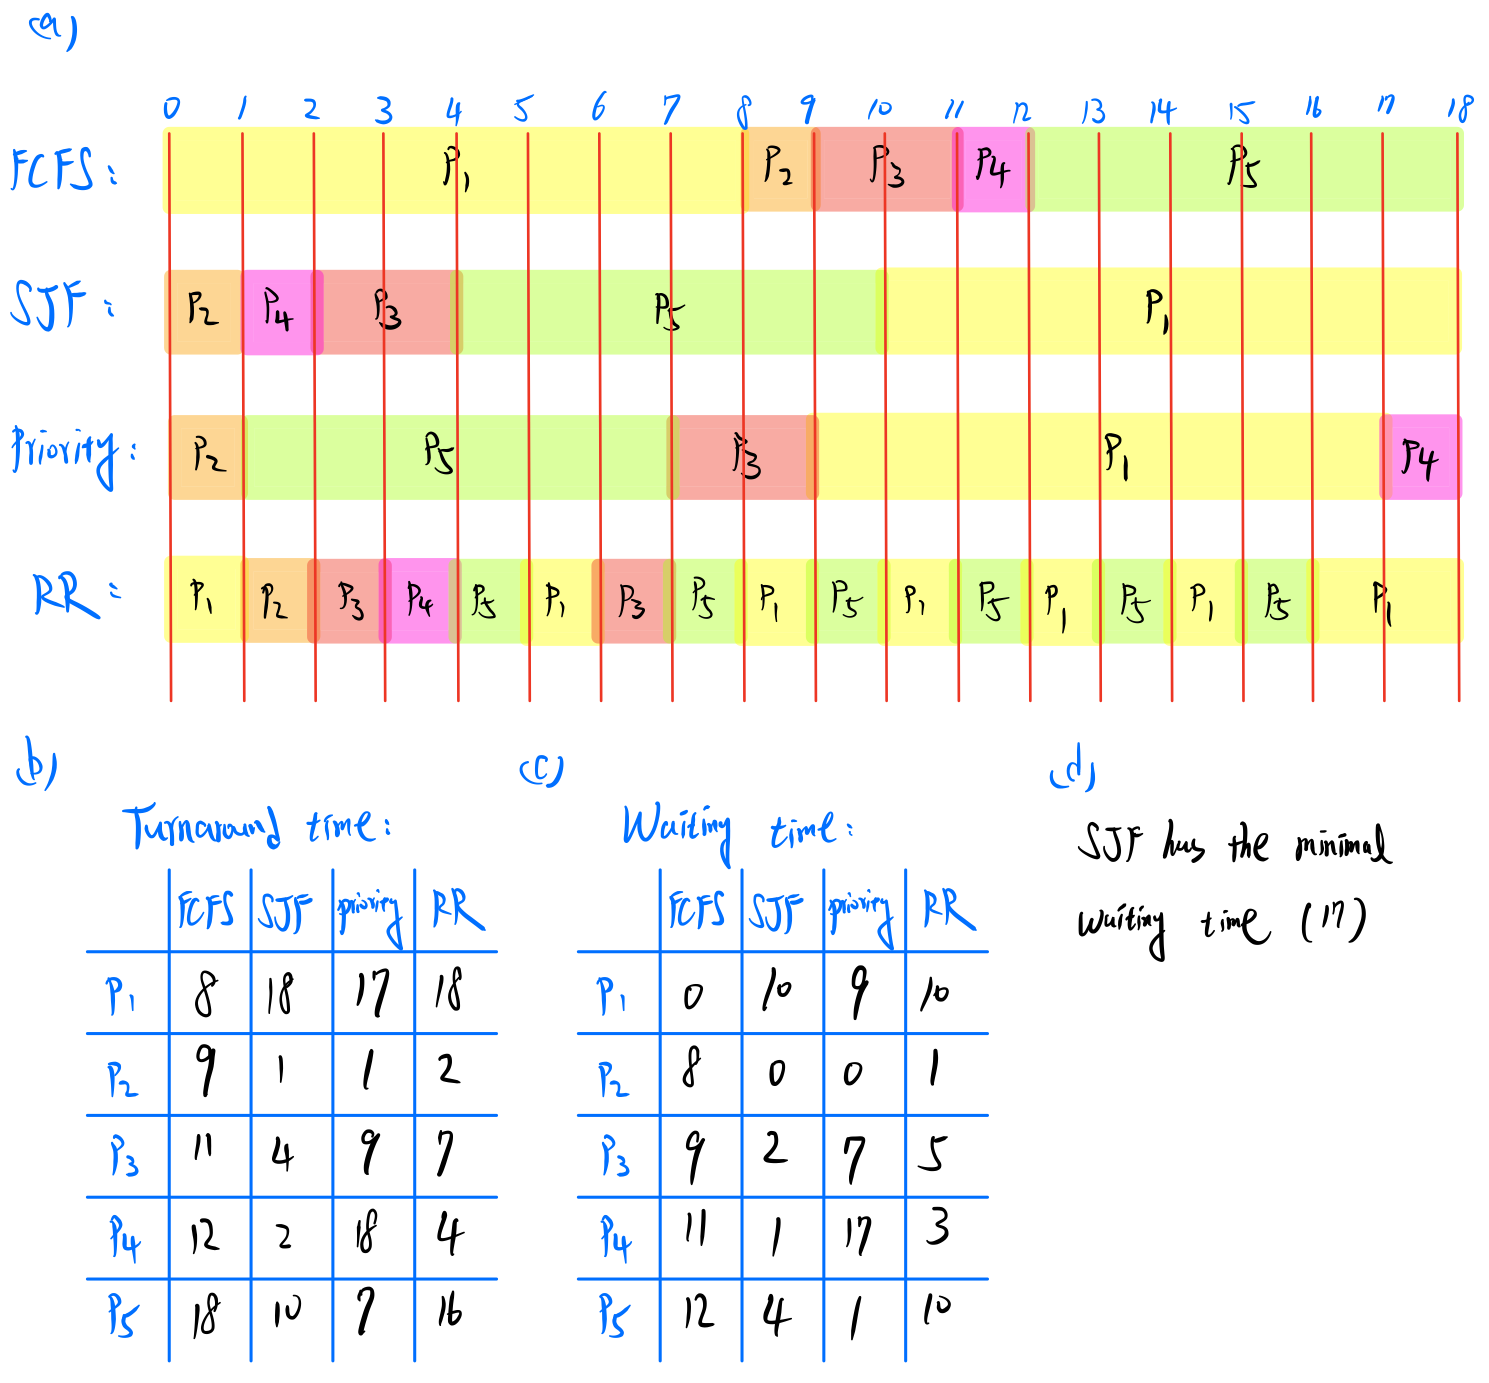 (a)
0 1 2 3 4 5 6 7 8 9 10 11 12 13 14 15 16 17 18
FCFS: P1 P2 P3 P4 P5
SJF: P2 P4 P3 P5 P1
Priority: P2 P5 P3 P1 P4
RR: P1 P2 P3 P4 P5 P1 P3 P5 P1 P5 P1 P5 P1 P5 P1 P5 P1
(b)
Turnaround time:
FCFS SJF priority RR
P1 8 18 17 18
P2 9 1 1 2
P3 11 4 9 7
P4 12 2 18 4
P5 18 10 7 16
(c)
Waiting time:
FCFS SJF priority RR
P1 0 10 9 10
P2 8 0 0 1
P3 9 2 7 5
P4 11 1 17 3
P5 12 4 1 10
(d)
SJF has the minimal
waiting time (17)